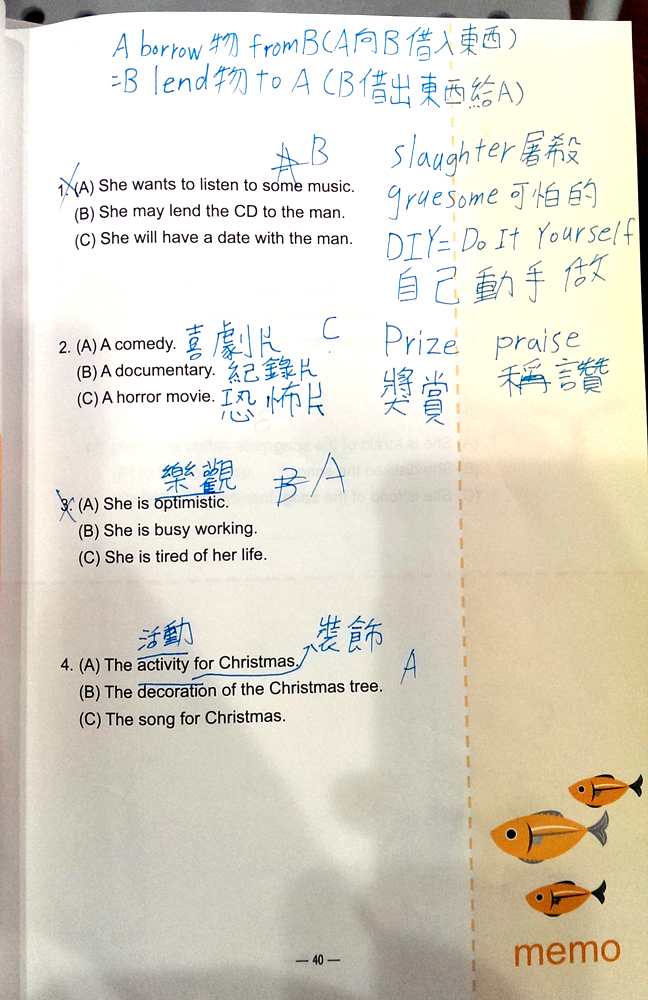 A borrow 物 from B (A向B借入東西)
=B lend 物 to A (B借出東西給A)
A B
1. (A) She wants to listen to some music.
(B) She may lend the CD to the man.
(C) She will have a date with the man.
slaughter 屠殺
gruesome 可怕的
DIY= Do It Yourself
自己動手做
2. (A) A comedy. 喜劇片 C
(B) A documentary. 紀錄片
(C) A horror movie. 恐怖片
Prize praise
獎賞 稱讚
樂觀 B A
3. (A) She is optimistic.
(B) She is busy working.
(C) She is tired of her life.
活動 裝飾
4. (A) The activity for Christmas. A
(B) The decoration of the Christmas tree.
(C) The song for Christmas.
— 40 —
memo